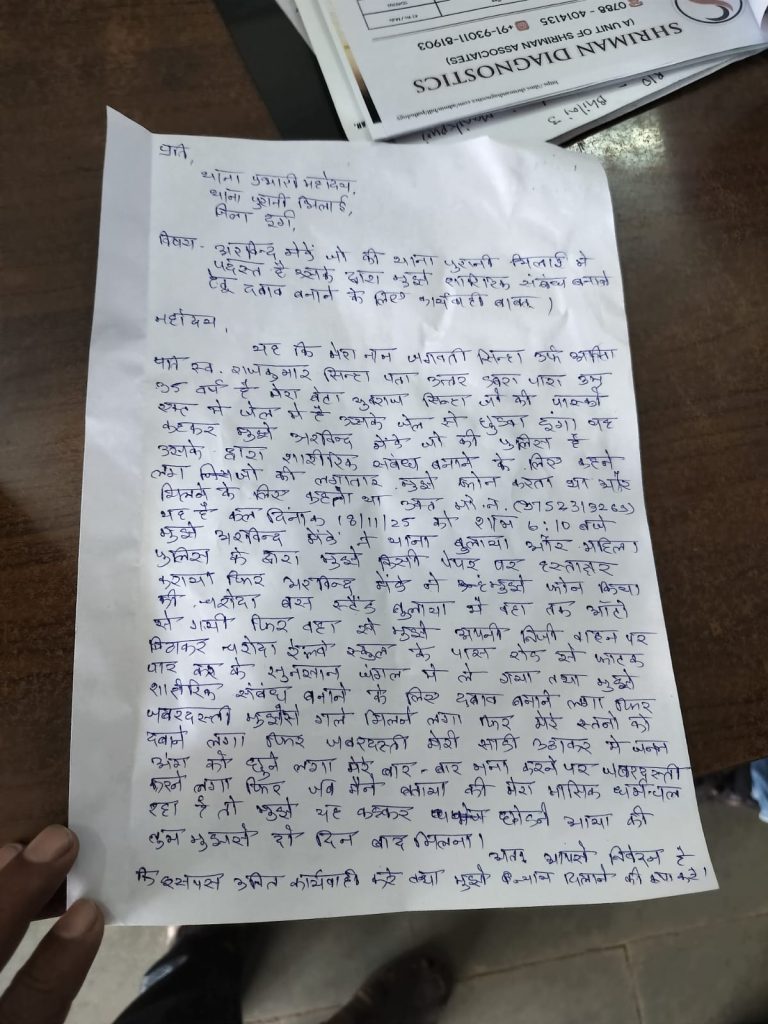 SHRIMAN DIAGNOSTICS
(A UNIT OF SHRIMAN ASSOCIATES)
0788 - 4014135 +91-93011-81903
Bhilai 3
प्रति,
थाना प्रभारी महोदय,
थाना पुरानी भिलाई,
जिला दुर्ग,
विषय - अरविन्द मेंढे जो की थाना पुरानी भिलाई में
पदस्त है उसके द्वारा मुझे शारिरिक संबंध बनाने
हेतू दबाव बनाने के लिए कार्यवाही बाबत्।
महोदय,
यह कि मेरा नाम सिन्हा उर्फ
पति स्व. राजकुमार सिन्हा पता उत्तर पारा उम्र
35 वर्ष है मेरा बेटा सिन्हा जो की पास्को
एक्ट में जेल में है उसके जेल से छुड़ा दुंगा यह
कहकर मुझे अरविन्द मेंढे जो की पुलिस है
उसके द्वारा शारीरिक संबंध बनाने के लिए कहने
लगा जो की लगातार मुझे फोन करता था और
मिलने के लिए कहता था उक्त मो.न.
यह है कल दिनांक 18/11/25 को शाम 6:10 बजे
मुझे अरविन्द मेंढे ने थाना बुलाया और महिला
पुलिस के द्वारा मुझे किसी पेपर पर हस्ताक्षर
कराया फिर अरविन्द मेंढे ने मुझे फोन किया
की चरोदा बस स्टैंड बुलाया मैं वहा तक ऑटो
से गयी फिर वहा से मुझे अपनी निजी वाहन पर
बिठाकर चरोदा रेलवे स्कुल के पास रोड से फाटक
पार कर के सुनसान जंगल में ले गया तथा मुझे
शारीरिक संबंध बनाने के लिए दबाव बनाने लगा फिर
जबरदस्ती मुझसे गले मिलने लगा फिर मेरे स्तनों को
दबाने लगा फिर जबरदस्ती मेरी साडी उठाकर मे जनन
अंग को छुने लगा मेरे बार-बार मना करने पर जबरदस्ती
करने लगा फिर जब मैने बताया की मेरा मासिक धर्म चल
रहा है तो मुझे यह कहकर छोडने आया की
तुम मुझसे दो दिन बाद मिलना।
अतः आपसे निवेदन है
कि इसपर उचित कार्यवाही करे तथा मुझे न्याय दिलाने की कृपा करे।